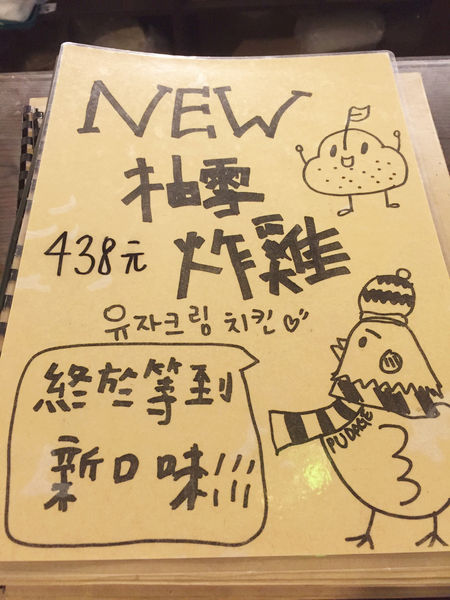 NEW
柚雪
炸雞
438元
유자크림 치킨
終於等到
新口味!!!
PUDGIE